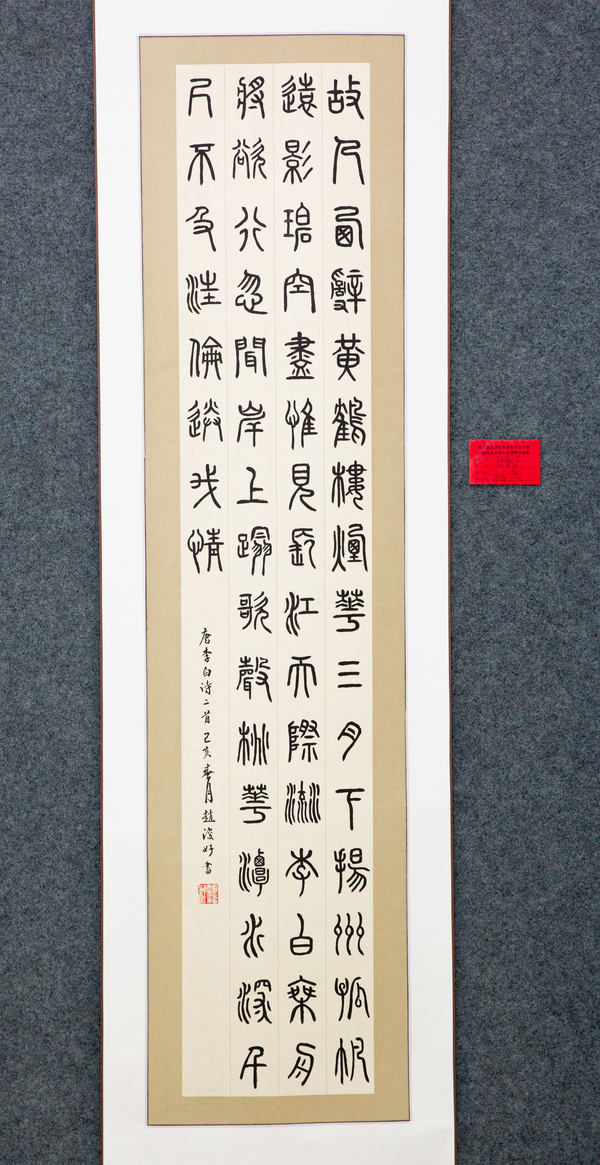 故人西辭黃鶴樓煙華三月下揚州孤帆
遠影碧空盡惟見長江天際流李白乘舟
將欲行忽聞岸上蹋歌聲桃華潭水深千
尺不及汪倫送我情
唐李白诗二首己亥春月趙浚好書